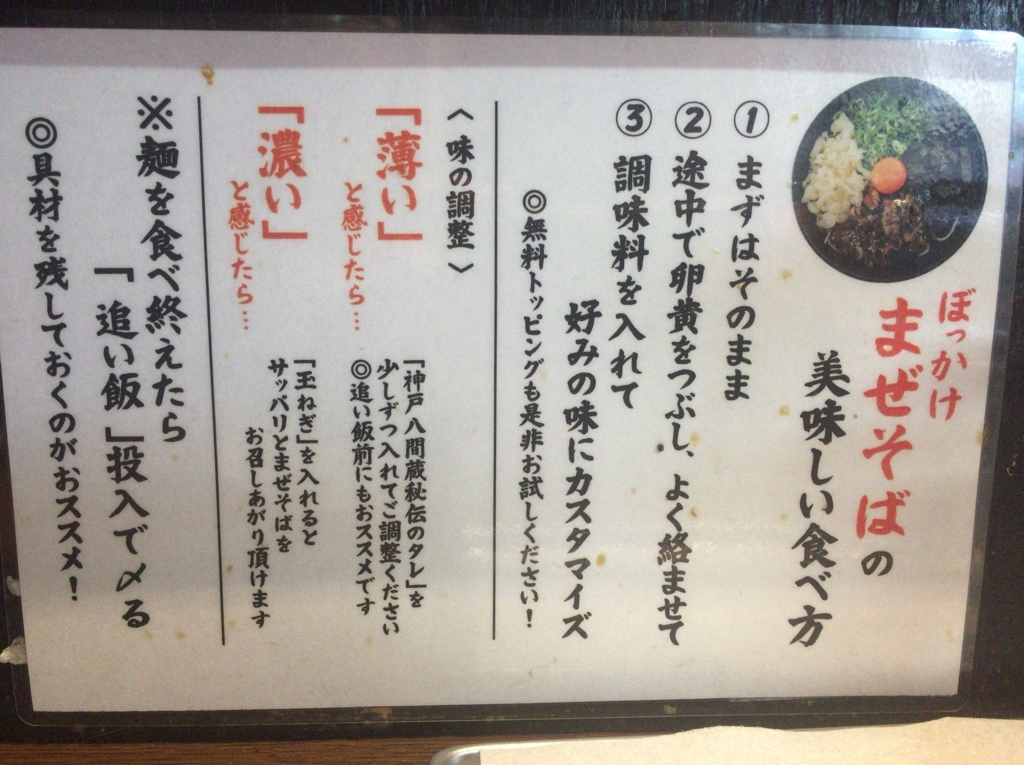 ぼっかけ
まぜそばの
美味しい食べ方
① まずはそのまま
② 途中で卵黄をつぶし、よく絡ませて
③ 調味料を入れて
好みの味にカスタマイズ
◎無料トッピングも是非お試しください！
〈味の調整〉
「薄い」
と感じたら…
「神戸八間蔵秘伝のタレ」を
少しずつ入れてご調整ください
◎追い飯前にもおススメです
「濃い」
と感じたら…
「玉ねぎ」を入れると
サッパリとまぜそばを
お召しあがり頂けます
※麺を食べ終えたら
「追い飯」投入で〆る
◎具材を残しておくのがおススメ！